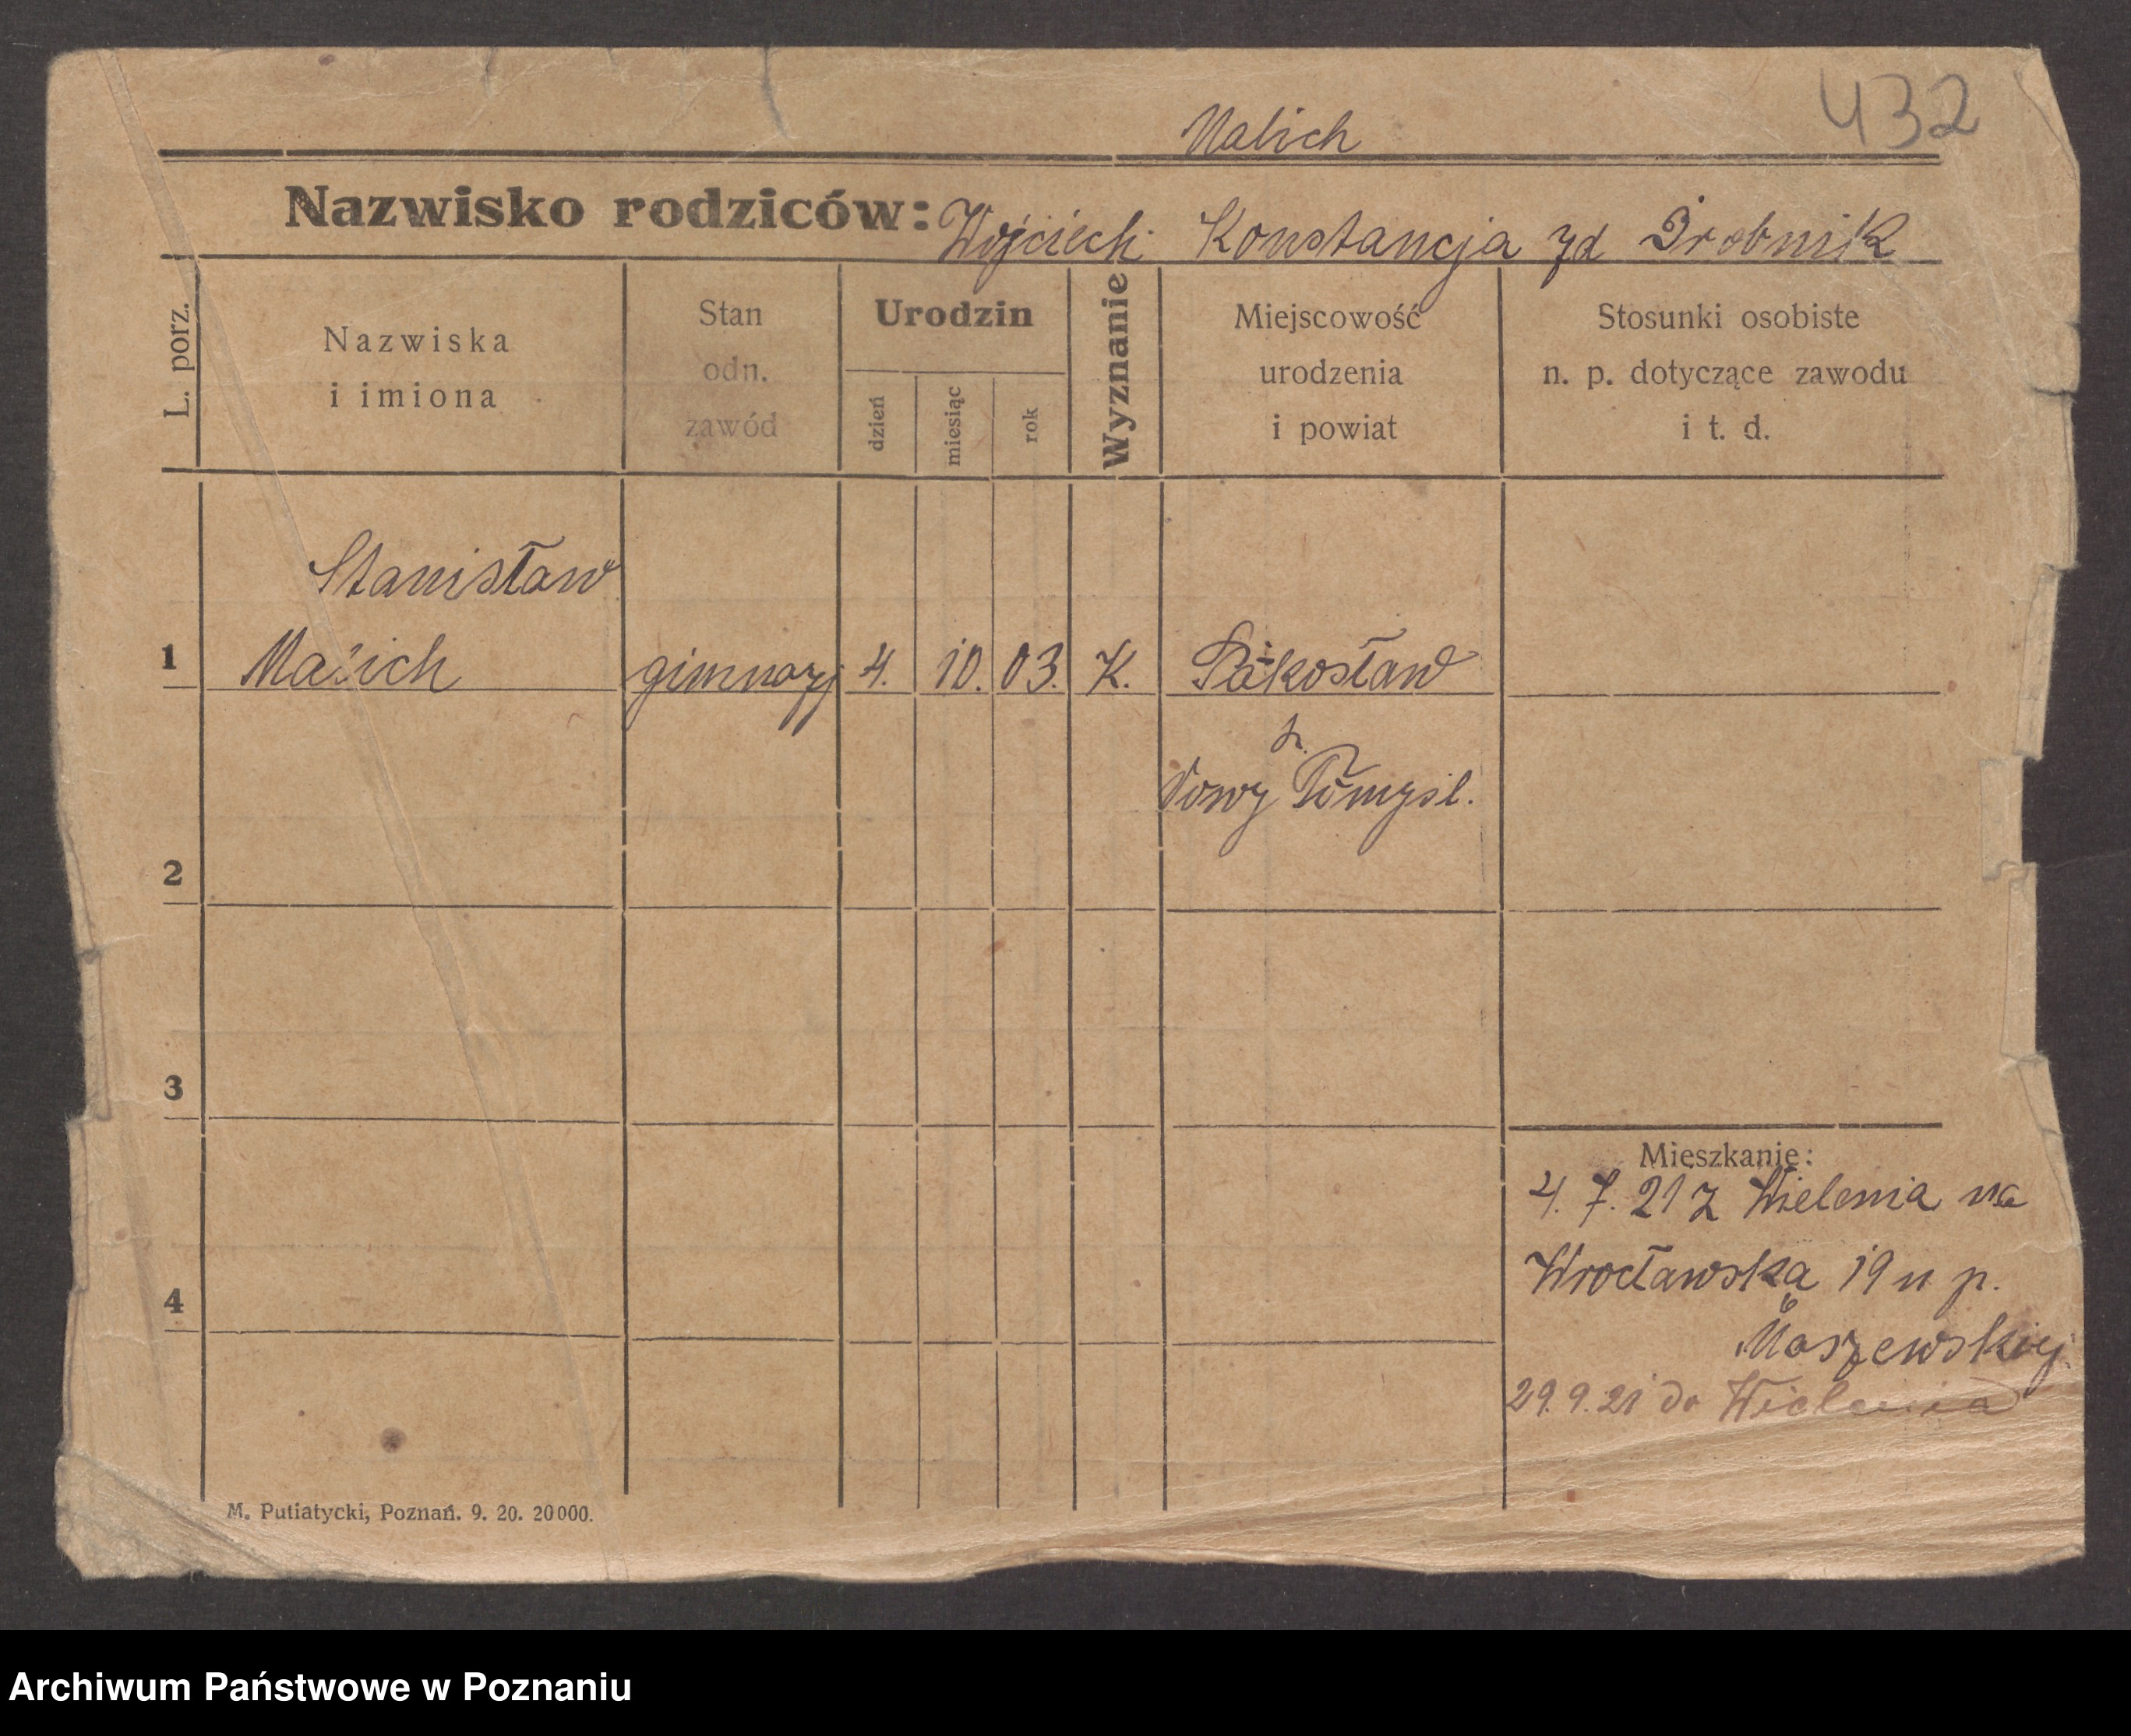 432
Malich
Nazwisko rodziców: Wojciech Konstancja zd Drobnik
L. porz.
Nazwiska
i imiona
Stan
odn.
zawód
Urodzin
dzień
miesiąc
rok
Wyznanie
Miejscowość
urodzenia
i powiat
Stosunki osobiste
n. p. dotyczące zawodu
i t. d.
Stanisław
1 Malich gimnazj 4. 10. 03. K. Pakosław
p.
Nowy Tomyśl.
2
3
Mieszkanie:
4. 7. 21 z Wielenia na
Wrocławska 19 u p.
4
Maszewskiej
29. 9. 21 do Wielenia
M. Putiatycki, Poznań. 9. 20. 20000.
Archiwum Państwowe w Poznaniu